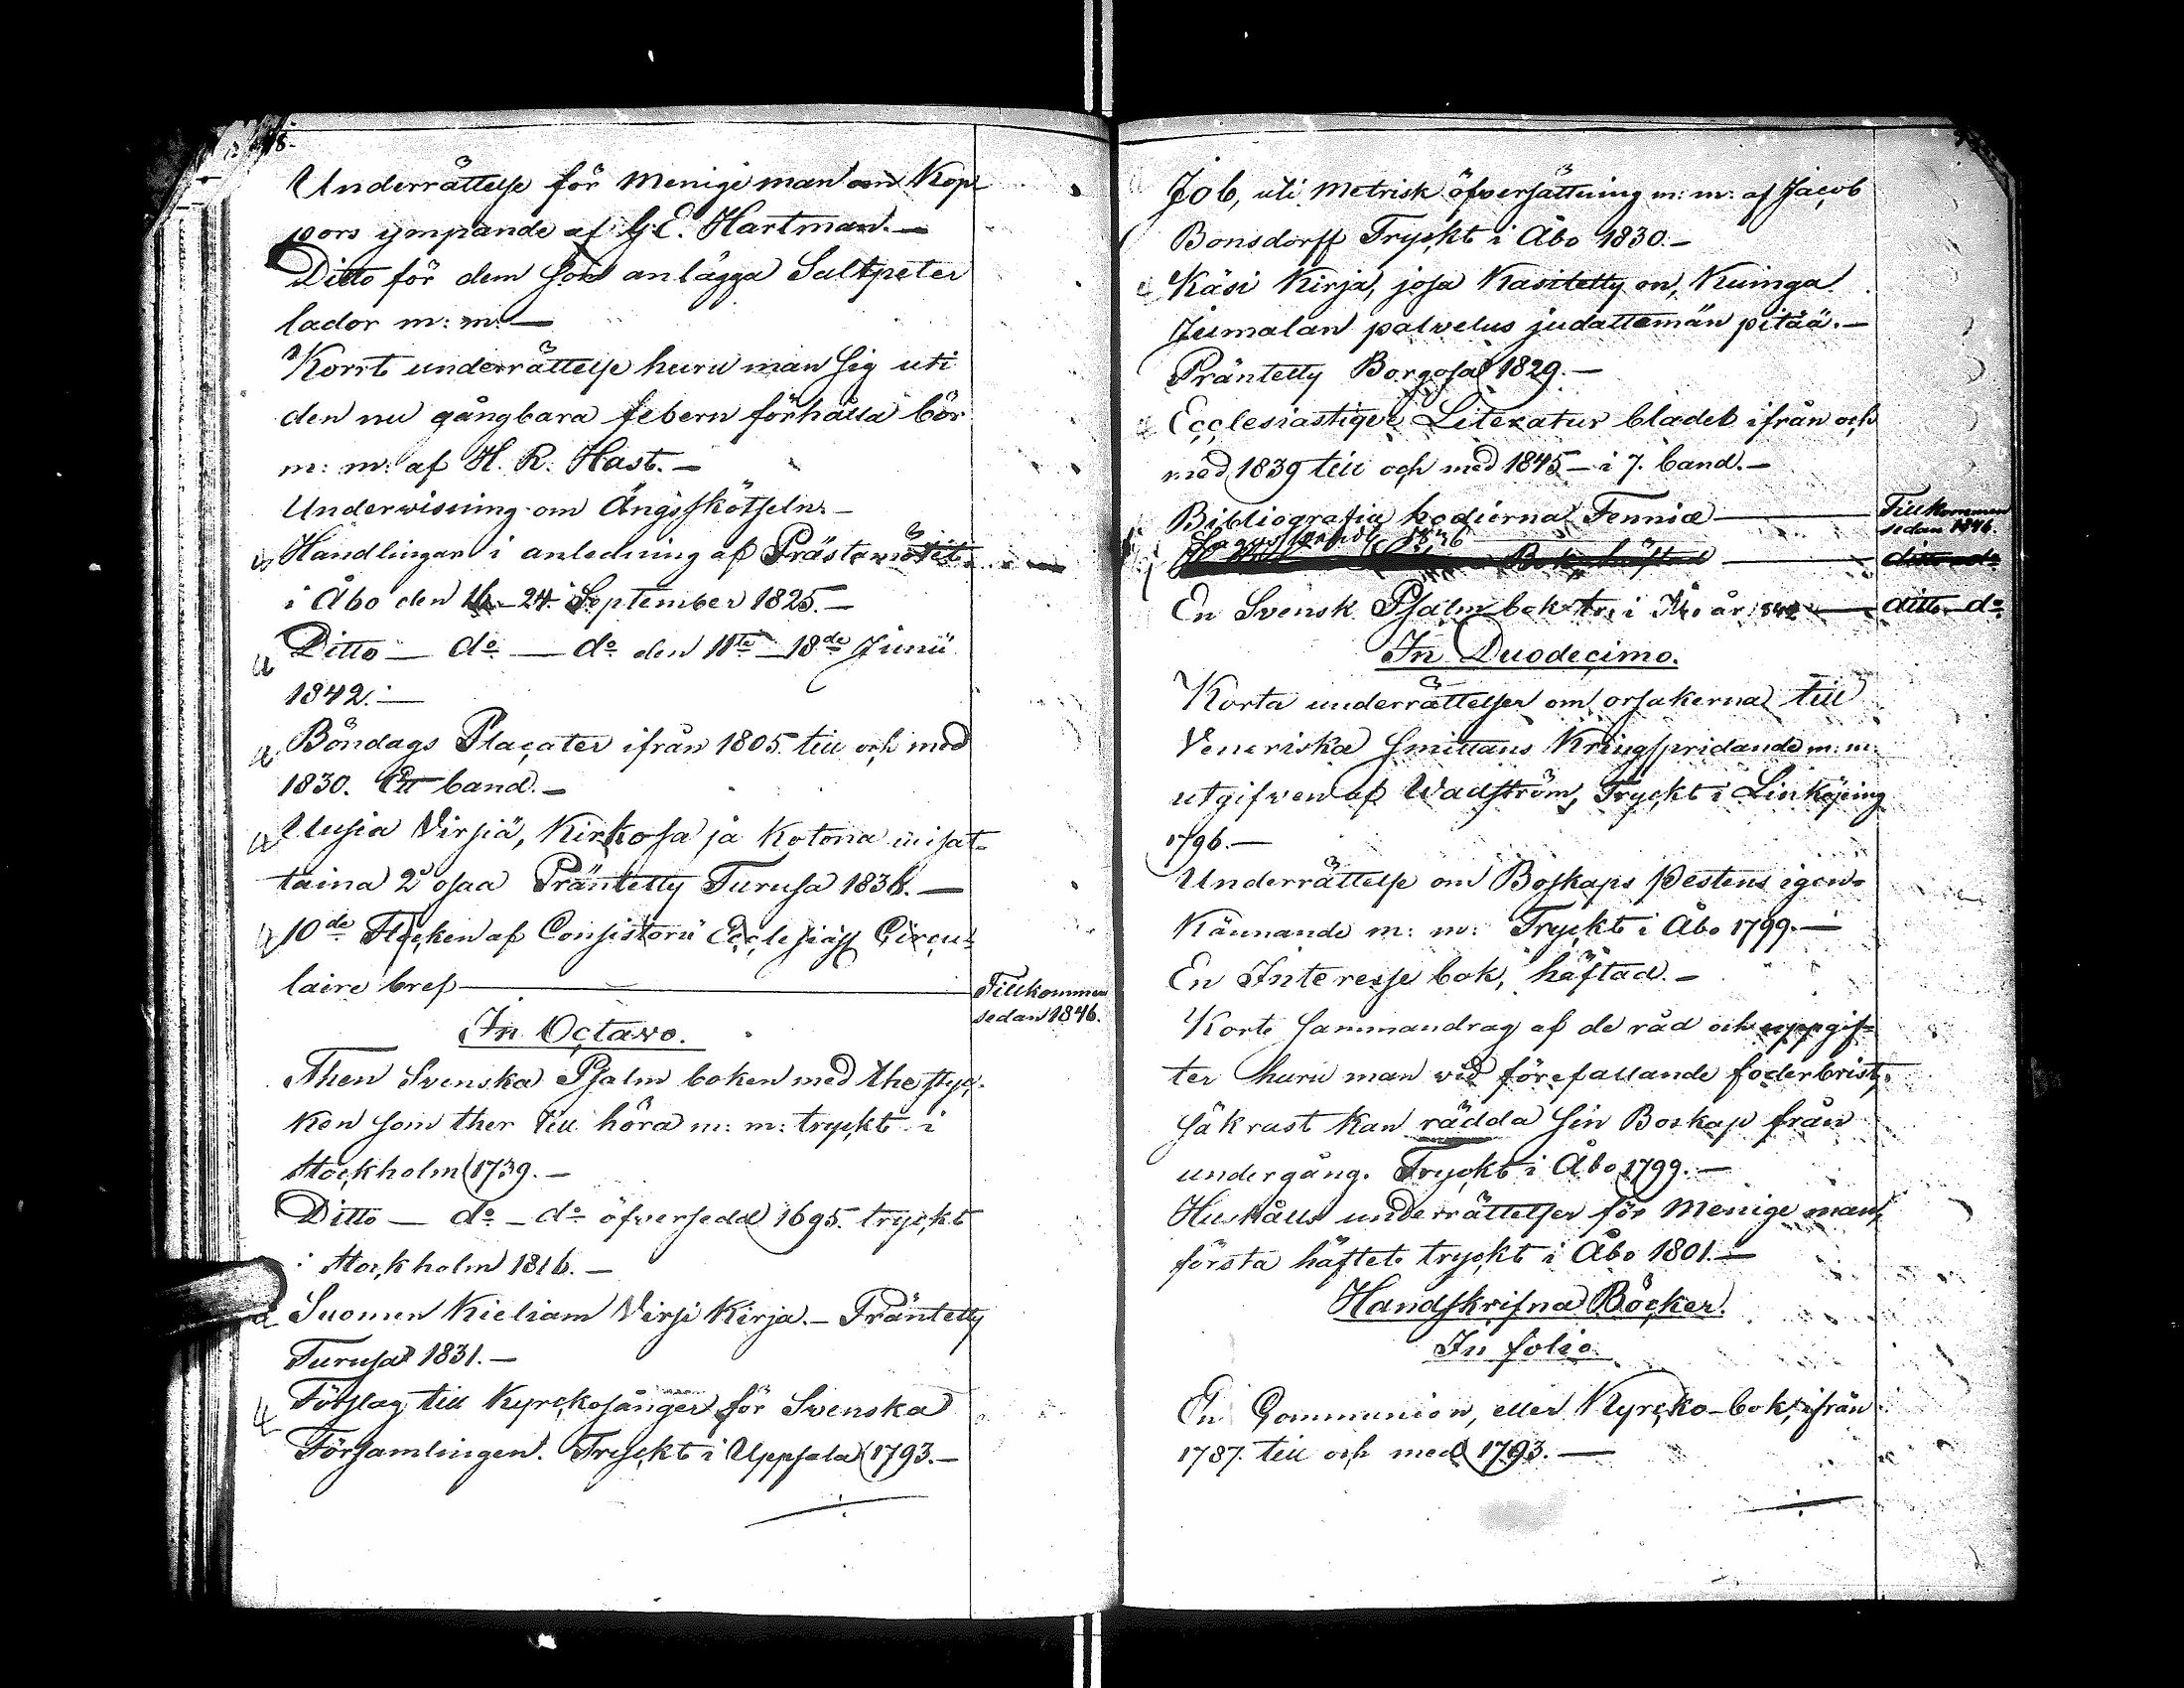 Underrättelse för Menige man om Kop-
pors ympande af G. E. Hartman. —
Ditto för dem som anlägga Saltpeter
lador m: m: —
Korrt underrättelse huru man sig uti
den nu gångbara febern förhålla bör
m: m: af H. R. Hast. —
Underwisning om Ängsskötseln. —
Handlingar i anledning af Prästamötet
i Åbo den 16 - 24 September 1825. —
Ditto — do — do den 11te — 18de Junii
1842. —
Böndags Placater ifrån 1805 till och med
1830. Ett band. —
Uusia Virsiä, Kirkosa ja Kotona
taina 2 osaa Präntetty Turusa 1836. —
10de Flocken af Consistorii Ecclesiast Circu-
laire bref —
Tillkommen
sedan 1846.
In Octavo.
Then Svenska Psalm boken med the styc-
ken som ther till höra m: m: tryckt i
Stockholm 1739. —
Ditto — do — do öfversedd 1695. tryckt
i Stockholm 1816. —
Suomen Kieliam Virsi Kirja. — Präntetty
Turusa 1831. —
Förslag till Kyrckosånger för Svenska
Församlingen. Tryckt i Uppsala 1793. —
Job, uti Metrisk öfversättning m: m: af Jacob
Bonsdorff Tryckt i Åbo 1830. —
Käsi Kirja, josa Kasitetty on, Kuinga
Jumalan palvelus judattaman pitää. —
Präntetty Borgosa 1829. —
Ecclesiastique Literatur bladet ifrån och
med 1839 till och med 1845 — i 7. band. —
Bibliografia hodierna Fenniæ —
Tillkommen
sedan 1846.
1846
ditto do
En Svensk Psalmbok tr. i Åbo år 1842 —
ditto do
In Duodecimo.
Korta underrättelser om orsakerna till
Veneriska Smittans Kringspridande m: m:
utgifven af Wadström, Tryckt i Linköping
1796. —
Underrättelse om Boskaps Pestens igen-
kännande m: m: Tryckt i Åbo 1799. —
En Interesse bok, häftad. —
Kort Sammandrag af de råd och uppgif-
ter huru man vid förefallande foderbrist,
säkrast kan rädda sin Boskap från
undergång. Tryckt i Åbo 1799. —
Hushålls underrättelser för Menige man,
första häftet tryckt i Åbo 1801. —
Handskrifna Böcker.
In folio.
En Communion, eller Kyrcko-bok, ifrån
1787. till och med 1793. —